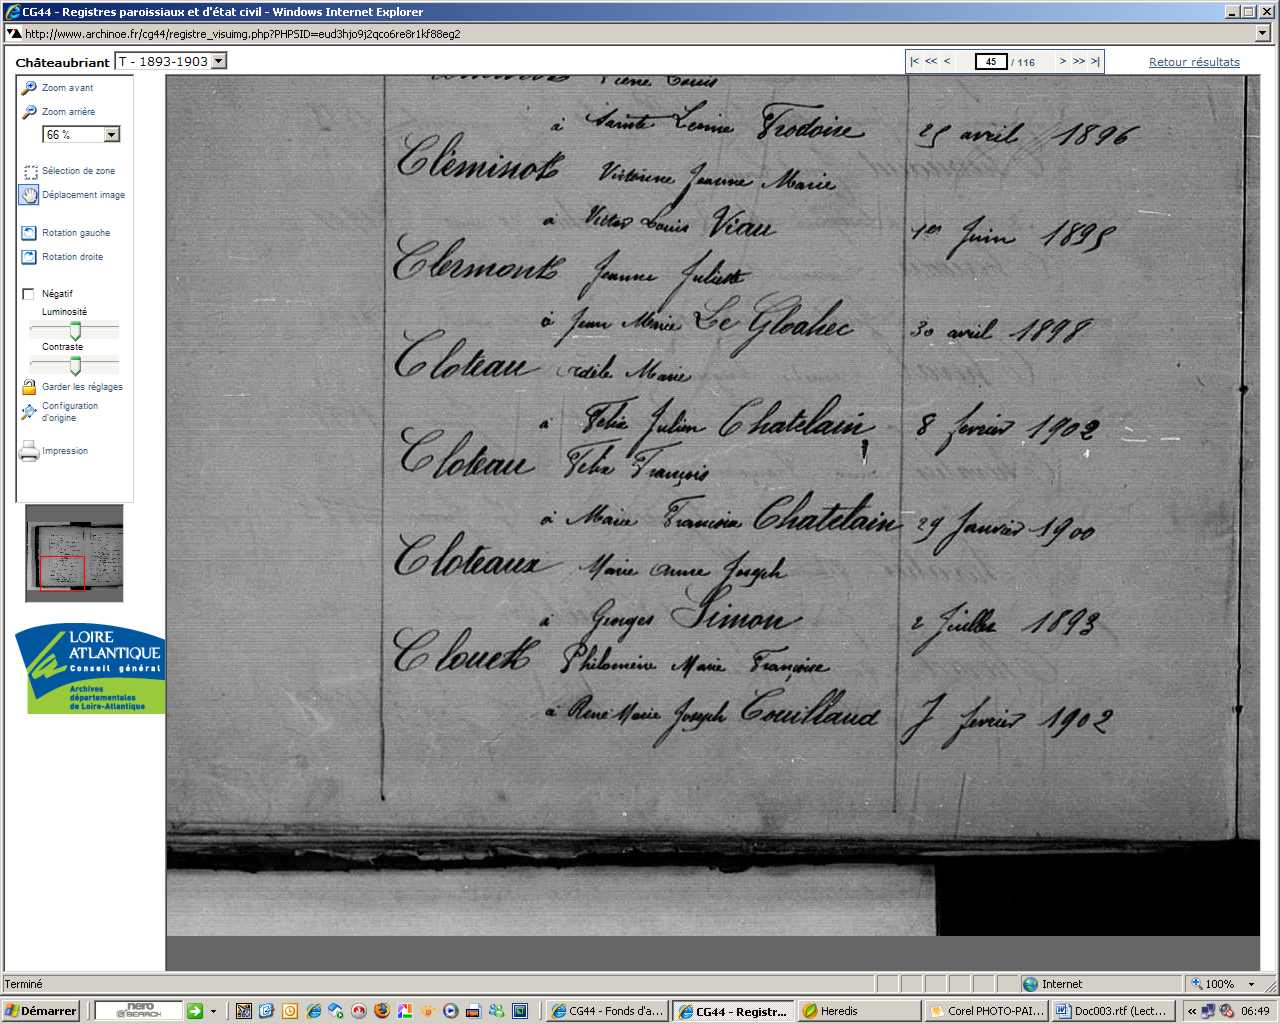 CG44 - Registres paroissiaux et d'état civil - Windows Internet Explorer
http://www.archinoe.fr/cg44/registre_visuimg.php?PHPSID=eud3hjo9j2qco6re8r1kf88eg2
Châteaubriant T - 1893-1903
|< << < 45 / 116 > >> >|
Retour résultats
Zoom avant
Zoom arrière
66 %
Sélection de zone
Déplacement image
Rotation gauche
Rotation droite
Négatif
Luminosité
Contraste
Garder les réglages
Configuration
d'origine
Impression
LOIRE
ATLANTIQUE
Conseil général
Archives
départementales
de Loire-Atlantique
Pierre Louis
à Sainte Trodoire 25 avril 1896
Cléminot Victorine Jeanne Marie
à Victor Louis Viau 1er Juin 1895
Clermont Jeanne Juliette
à Jean Marie Le Gloahec 30 avril 1898
Cloteau Adèle Marie
à Felix Julien Chatelain 8 fevrier 1902
Cloteau Felix François
à Marie Chatelain 29 Janvier 1900
Cloteaux Marie Anne Joseph
à Georges Simon 2 Juillet 1893
Clouet Philomène Marie Françoise
à René Marie Joseph Couillaud 7 fevrier 1902
Terminé
Internet
100%
Démarrer
nero
SEARCH
CG44 - Fonds d'a...
CG44 - Registr...
Heredis
Corel PHOTO-PAI...
Doc003.rtf (Lect...
06:49